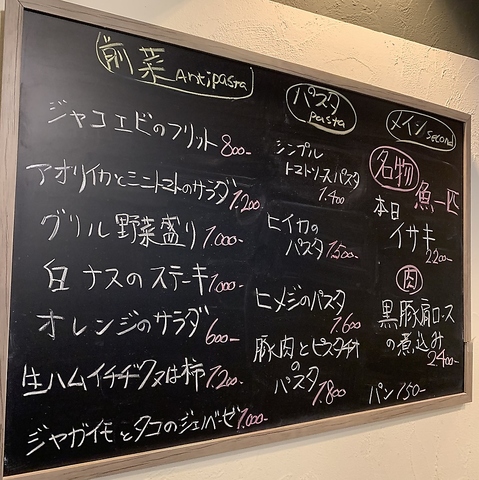 前菜 Antipasta
ジャコエビのフリット 800-
アオリイカとミニトマトのサラダ 1.200-
グリル野菜盛り 1.000-
白ナスのステーキ 1.000-
オレンジのサラダ 600-
生ハムイチヂク又は柿 1.200-
ジャガイモとタコのジェノベーゼ 1.000-
パスタ
pasta
シンプル
トマトソースパスタ
1.400
ヒイカの
パスタ 1.500-
ヒメジのパスタ
1.600
豚肉とピスタチオ
の
パスタ 1.800
メイン second
名物 魚一匹
本日
イサキ
2200-
肉
黒豚肩ロース
の煮込み
2400-
パン 150-